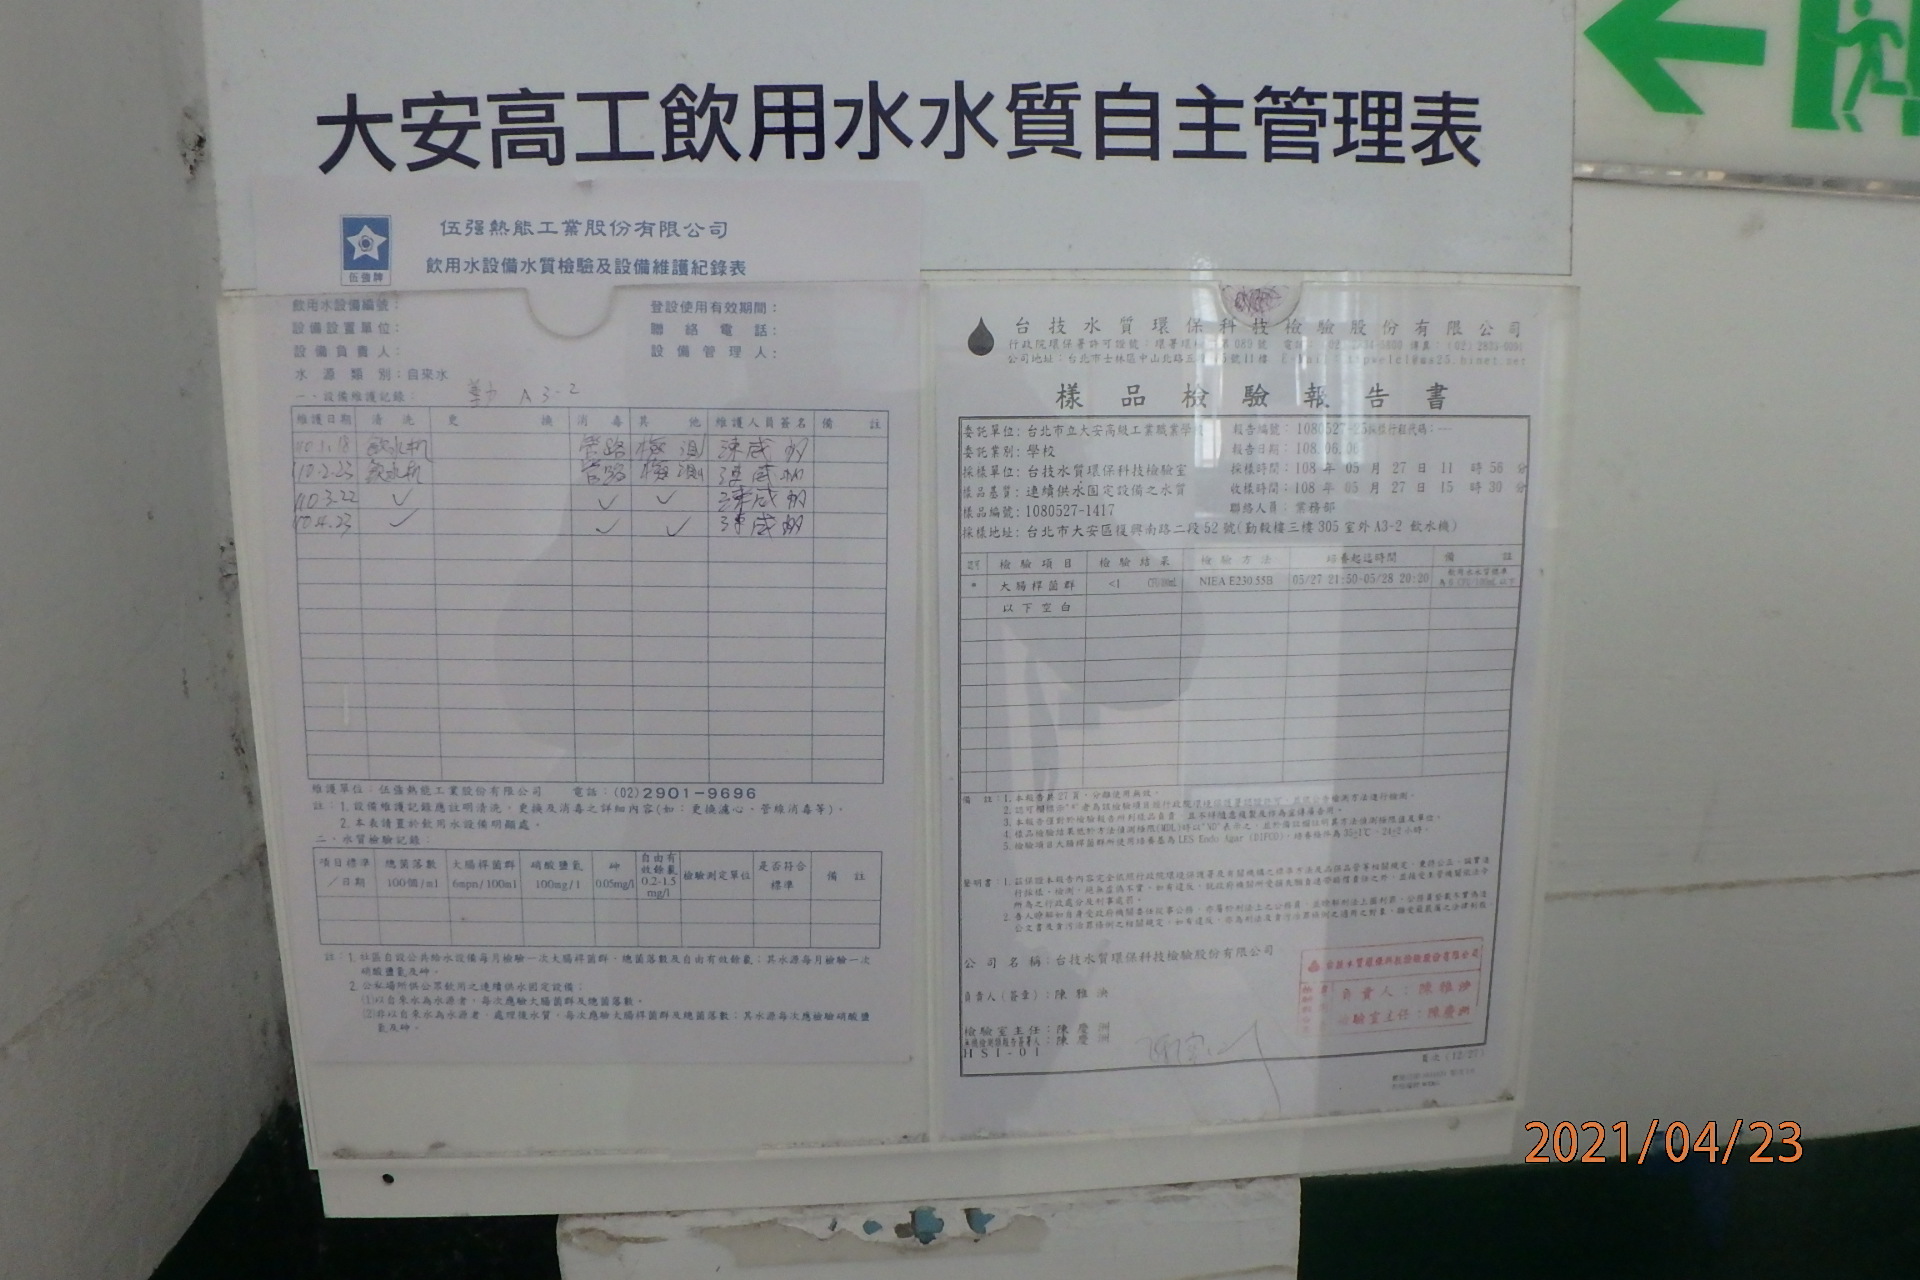 大安高工飲用水水質自主管理表
伍強牌
伍强熱能工業股份有限公司
飲用水設備水質檢驗及設備維護紀錄表
飲用水設備編號：
登設使用有效期間：
設備設置單位：
聯絡電話：
設備負責人：
設備管理人：
水源類別：自來水
一、設備維護記錄：
A3-2
維護日期 清洗 更換 消毒 其他 維護人員簽名 備註
110.1.18 飲水机 管路 檢測
110.2.23 飲水机 管路 檢測
110.3.22 ✓ ✓ ✓
110.4.23 ✓ ✓ ✓
維護單位：伍強熱能工業股份有限公司 電話：(02)2901-9696
註：1.設備維護記錄應註明清洗、更換及消毒之詳細內容(如：更換濾心、管線消毒等)。
2.本表請置於飲用水設備明顯處。
二、水質檢驗記錄：
項目標準／日期 總菌落數100個/ml 大腸桿菌群6mpn/100ml 硝酸鹽氮100mg/l 砷0.05mg/l 自由有效餘氯0.2-1.5mg/l 檢驗測定單位 是否符合標準 備註
註：1.社區自設公共給水設備每月檢驗一次大腸桿菌群、總菌落數及自由有效餘氯；其水源每月檢驗一次
硝酸鹽氮及砷。
2.公私場所供公眾飲用之連續供水固定設備：
(1)以自來水為水源者，每次應驗大腸菌群及總菌落數。
(2)非以自來水為水源者，處理後水質，每次應驗大腸桿菌群及總菌落數；其水源每次應檢驗硝酸鹽
氮及砷。
台技水質環保科技檢驗股份有限公司
行政院環保署許可證號：環署環檢 第089號
公司地址：台北市士林區中山北路五 號11樓
樣品檢驗報告書
委託單位：台北市立大安高級工業職業學校
報告編號：1080527
委託業別：學校
報告日期：108.06.06
採樣單位：台技水質環保科技檢驗室
採樣時間：108 年 05 月 27 日 11 時 56 分
樣品基質：連續供水固定設備之水質
收樣時間：108 年 05 月 27 日 15 時 30 分
樣品編號：1080527-1417
聯絡人員：業務部
採樣地址：台北市大安區復興南路二段52號(勤毅樓三樓305室外A3-2飲水機)
認可 檢驗項目 檢驗結果 檢驗方法 培養起迄時間 備註
* 大腸桿菌群 <1 CFU/100mL NIEA E230.55B 05/27 21:50-05/28 20:20
以下空白
備註：1.本報告共27頁，分離使用無效。
聲明書：
公司名稱：台技水質環保科技檢驗股份有限公司
負責人(簽章)：陳雅泱
檢驗室主任：陳慶洲
陳慶洲
HSI-01
台技水質環保科技檢驗股份有限公司
負責人：陳雅泱
檢驗室主任：陳慶洲
頁次(12/27)
2021/04/23